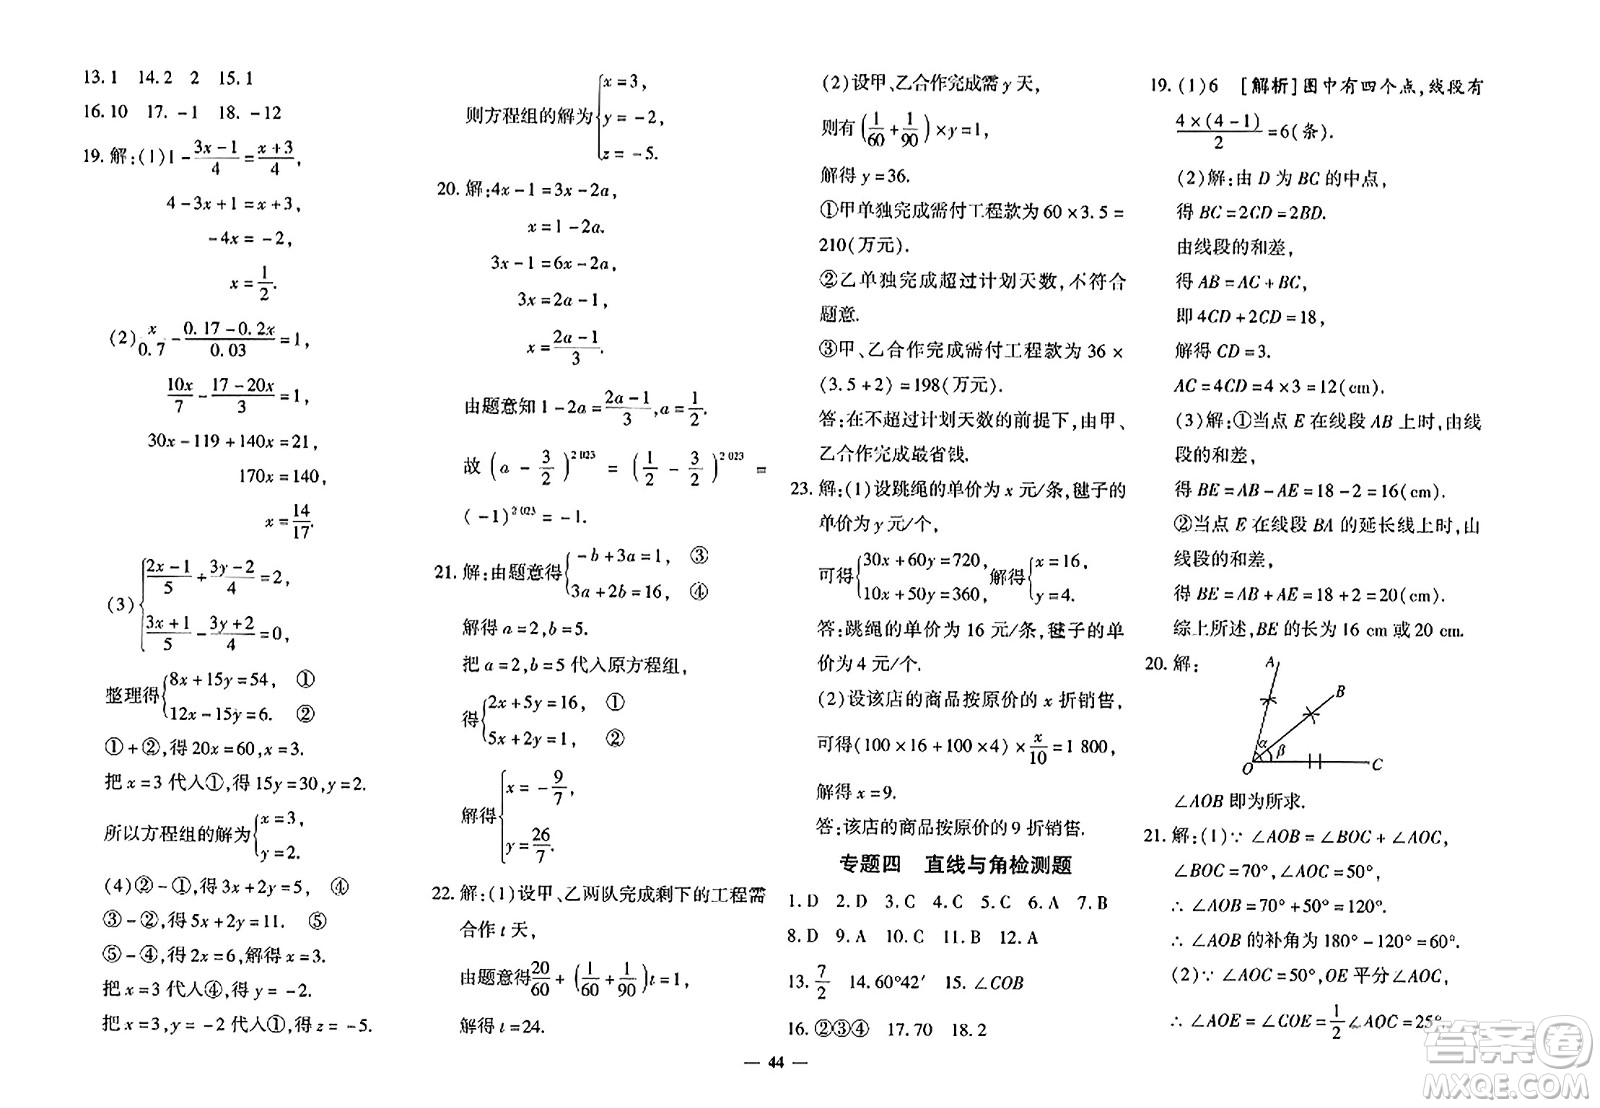 13. 1　14. 2　2　15. 1
16. 10　17. -1　18. -12
19. 解:(1)1-\frac{3x-1}{4}=\frac{x+3}{4},
4-3x+1=x+3,
-4x=-2,
x=\frac{1}{2}.
(2)\frac{x}{0.7}-\frac{0.17-0.2x}{0.03}=1,
\frac{10x}{7}-\frac{17-20x}{3}=1,
30x-119+140x=21,
170x=140,
x=\frac{14}{17}.
(3){\frac{2x-1}{5}+\frac{3y-2}{4}=2,
\frac{3x+1}{5}-\frac{3y+2}{4}=0,
整理得{8x+15y=54, ①
12x-15y=6. ②
①+②,得20x=60,x=3.
把x=3代入①,得15y=30,y=2.
所以方程组的解为{x=3,
y=2.
(4)②-①,得3x+2y=5, ④
③-②,得5x+2y=11. ⑤
⑤-④,得2x=6,解得x=3.
把x=3代入④,得y=-2.
把x=3,y=-2代入①,得z=-5.
则方程组的解为{x=3,
y=-2,
z=-5.
20. 解:4x-1=3x-2a,
x=1-2a.
3x-1=6x-2a,
3x=2a-1,
x=\frac{2a-1}{3}.
由题意知1-2a=\frac{2a-1}{3},a=\frac{1}{2}.
故(a-\frac{3}{2})^{2 023}=(\frac{1}{2}-\frac{3}{2})^{2 023}=
(-1)^{2 023}=-1.
21. 解:由题意得{-b+3a=1, ③
3a+2b=16, ④
解得a=2,b=5.
把a=2,b=5代入原方程组,
得{2x+5y=16, ①
5x+2y=1, ②
解得{x=-\frac{9}{7},
y=\frac{26}{7}.
22. 解:(1)设甲、乙两队完成剩下的工程需
合作t天,
由题意得\frac{20}{60}+(\frac{1}{60}+\frac{1}{90})t=1,
解得t=24.
(2)设甲、乙合作完成需y天,
则有(\frac{1}{60}+\frac{1}{90})×y=1,
解得y=36.
①甲单独完成需付工程款为60×3.5=
210(万元).
②乙单独完成超过计划天数,不符合
题意.
③甲、乙合作完成需付工程款为36×
(3.5+2)=198(万元).
答:在不超过计划天数的前提下,由甲、
乙合作完成最省钱.
23. 解:(1)设跳绳的单价为x元/条,毽子的
单价为y元/个,
可得{30x+60y=720,
10x+50y=360,解得{x=16,
y=4.
答:跳绳的单价为16元/条,毽子的单
价为4元/个.
(2)设该店的商品按原价的x折销售,
可得(100×16+100×4)×\frac{x}{10}=1 800,
解得x=9.
答:该店的商品按原价的9折销售.
专题四　直线与角检测题
1. D　2. D　3. C　4. C　5. C　6. A　7. B
8. D　9. A　10. C　11. B　12. A
13. \frac{7}{2}　14. 60°42′　15. ∠COB
16. ②③④　17. 70　18. 2
19. (1)6　[解析]图中有四个点,线段有
\frac{4×(4-1)}{2}=6(条).
(2)解:由D为BC的中点,
得BC=2CD=2BD.
由线段的和差,
得AB=AC+BC,
即4CD+2CD=18,
解得CD=3.
AC=4CD=4×3=12(cm).
(3)解:①当点E在线段AB上时,由线
段的和差,
得BE=AB-AE=18-2=16(cm).
②当点E在线段BA的延长线上时,由
线段的和差,
得BE=AB+AE=18+2=20(cm).
综上所述,BE的长为16 cm或20 cm.
20. 解:
A
B
α
β
O
C
∠AOB即为所求.
21. 解:(1)∵∠AOB=∠BOC+∠AOC,
∠BOC=70°,∠AOC=50°,
∴∠AOB=70°+50°=120°.
∴∠AOB的补角为180°-120°=60°.
(2)∵∠AOC=50°,OE平分∠AOC,
∴∠AOE=∠COE=\frac{1}{2}∠AOC=25°.
— 44 —
答案圈
MXQE.COM